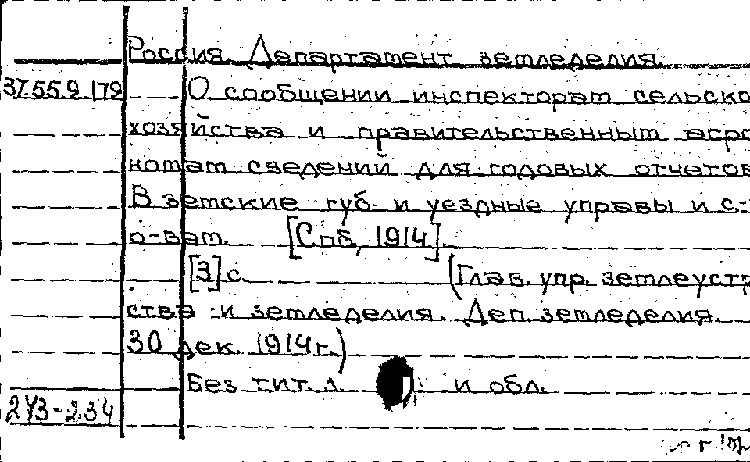 Россия. Департамент земледелия.
37.55.9.179 О сообщении инспекторам сельско
хозяйства и правительственным агро
номам сведений для годовых отчетов
В земские губ. и уездные управы и с.-
о-вам. [Спб, 1914]
[3] с. (Глав. упр. землеустр
ства и земледелия. Деп. земледелия.
30 дек. 1914 г.)
Без тит. л. и обл.
2УЗ-2.34